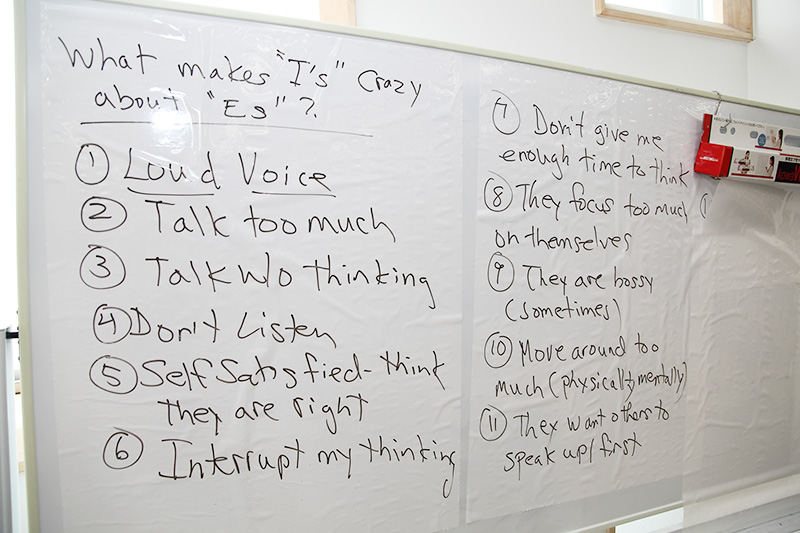 What makes "I's" crazy
about "Es"?
① Loud Voice
② Talk too much
③ Talk w/o thinking
④ Don't Listen
⑤ Self Satisfied - think
they are right
⑥ Interrupt my thinking
⑦ Don't give me
enough time to think
⑧ They focus too much
on themselves
⑨ They are bossy
(sometimes)
⑩ Move around too
much (physically, mentally)
⑪ They want others to
speak up/first